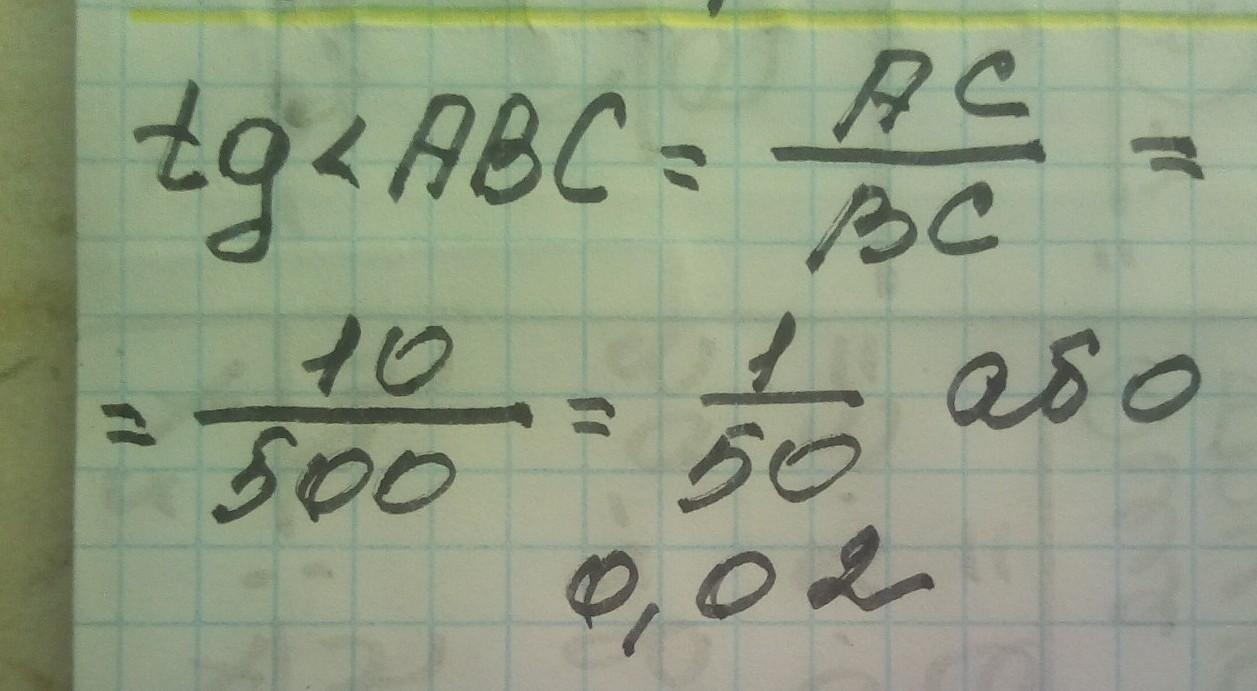 tg < ABC = AC / BC =
= 10 / 500 = 1 / 50 або
0,02